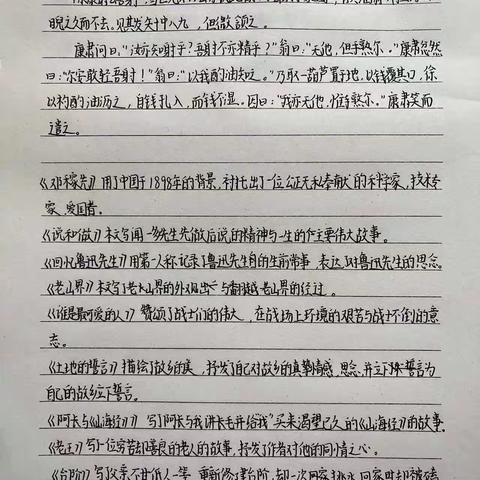 睨之久而不去。见其发矢十中八九，但微颔之。
康肃问曰："汝亦知射乎？吾射不亦精乎？"翁曰："无他，但手熟尔。"康肃忿然
曰："尔安敢轻吾射！"翁曰："以我酌油知之。"乃取一葫芦置于地，以钱覆其口，徐
以杓酌油沥之，自钱孔入，而钱不湿。因曰："我亦无他，惟手熟尔。"康肃笑而
遣之。
《邓稼先》用了中国于1898年的背景，衬托出了一位公正无私奉献的科学家，技术专
家，爱国者。
《说和做》本文写闻一多先生先做后说的精神与一生的作主要伟大故事。
《回忆鲁迅先生》用第一人称记录了鲁迅先生自的生前常事，表达对鲁迅先生的思念。
《老山界》本文写了老山界的外观出与翻越老山界的经过。
《谁是最可爱的人》赞颂了战士们的伟大，在战场上环境的艰苦与战士不倒的意
志。
《土地的誓言》描绘了故乡的美，抒发了自己对故乡的真挚情感，思念，并立下誓言为
自己的故乡立下誓言。
《阿长与《山海经》》写了阿长与我讲长毛并给我"买来渴望已久的《山海经》的故事。
《老王》写一位穷苦却善良的老人的故事，抒发了作者对他的同情之心。
《台阶》写了父亲不甘低人一等，重新修建台阶，却一次